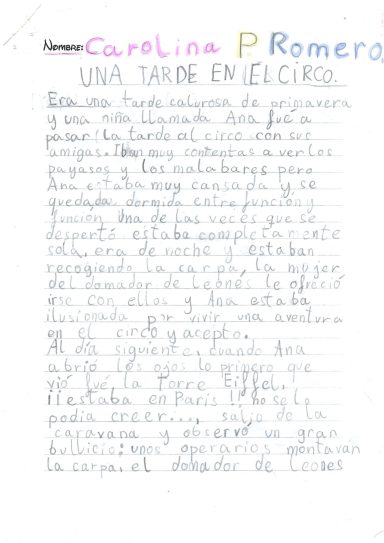 NOMBRE: Carolina P Romero.
UNA TARDE EN EL CIRCO.
Era una tarde calurosa de primavera
y una niña llamada Ana fué a
pasar la tarde al circo con sus
amigas. Iban muy contentas a ver los
payasos y los malabares pero
Ana estaba muy cansada y se
quedaba dormida entre función y
función. Una de las veces que se
despertó estaba completamente
sola, era de noche y estaban
recogiendo la carpa, la mujer
del domador de leones le ofreció
irse con ellos y Ana estaba
ilusionada por vivir una aventura
en el circo y acepto.
Al día siguiente, cuando Ana
abrió los ojos lo primero que
vió fué, la Torre Eiffel,
¡¡estaba en París!! no se lo
podia creer..., salio de la
caravana y observó un gran
bullicio: unos operarios montavan
la carpa, el domador de leones